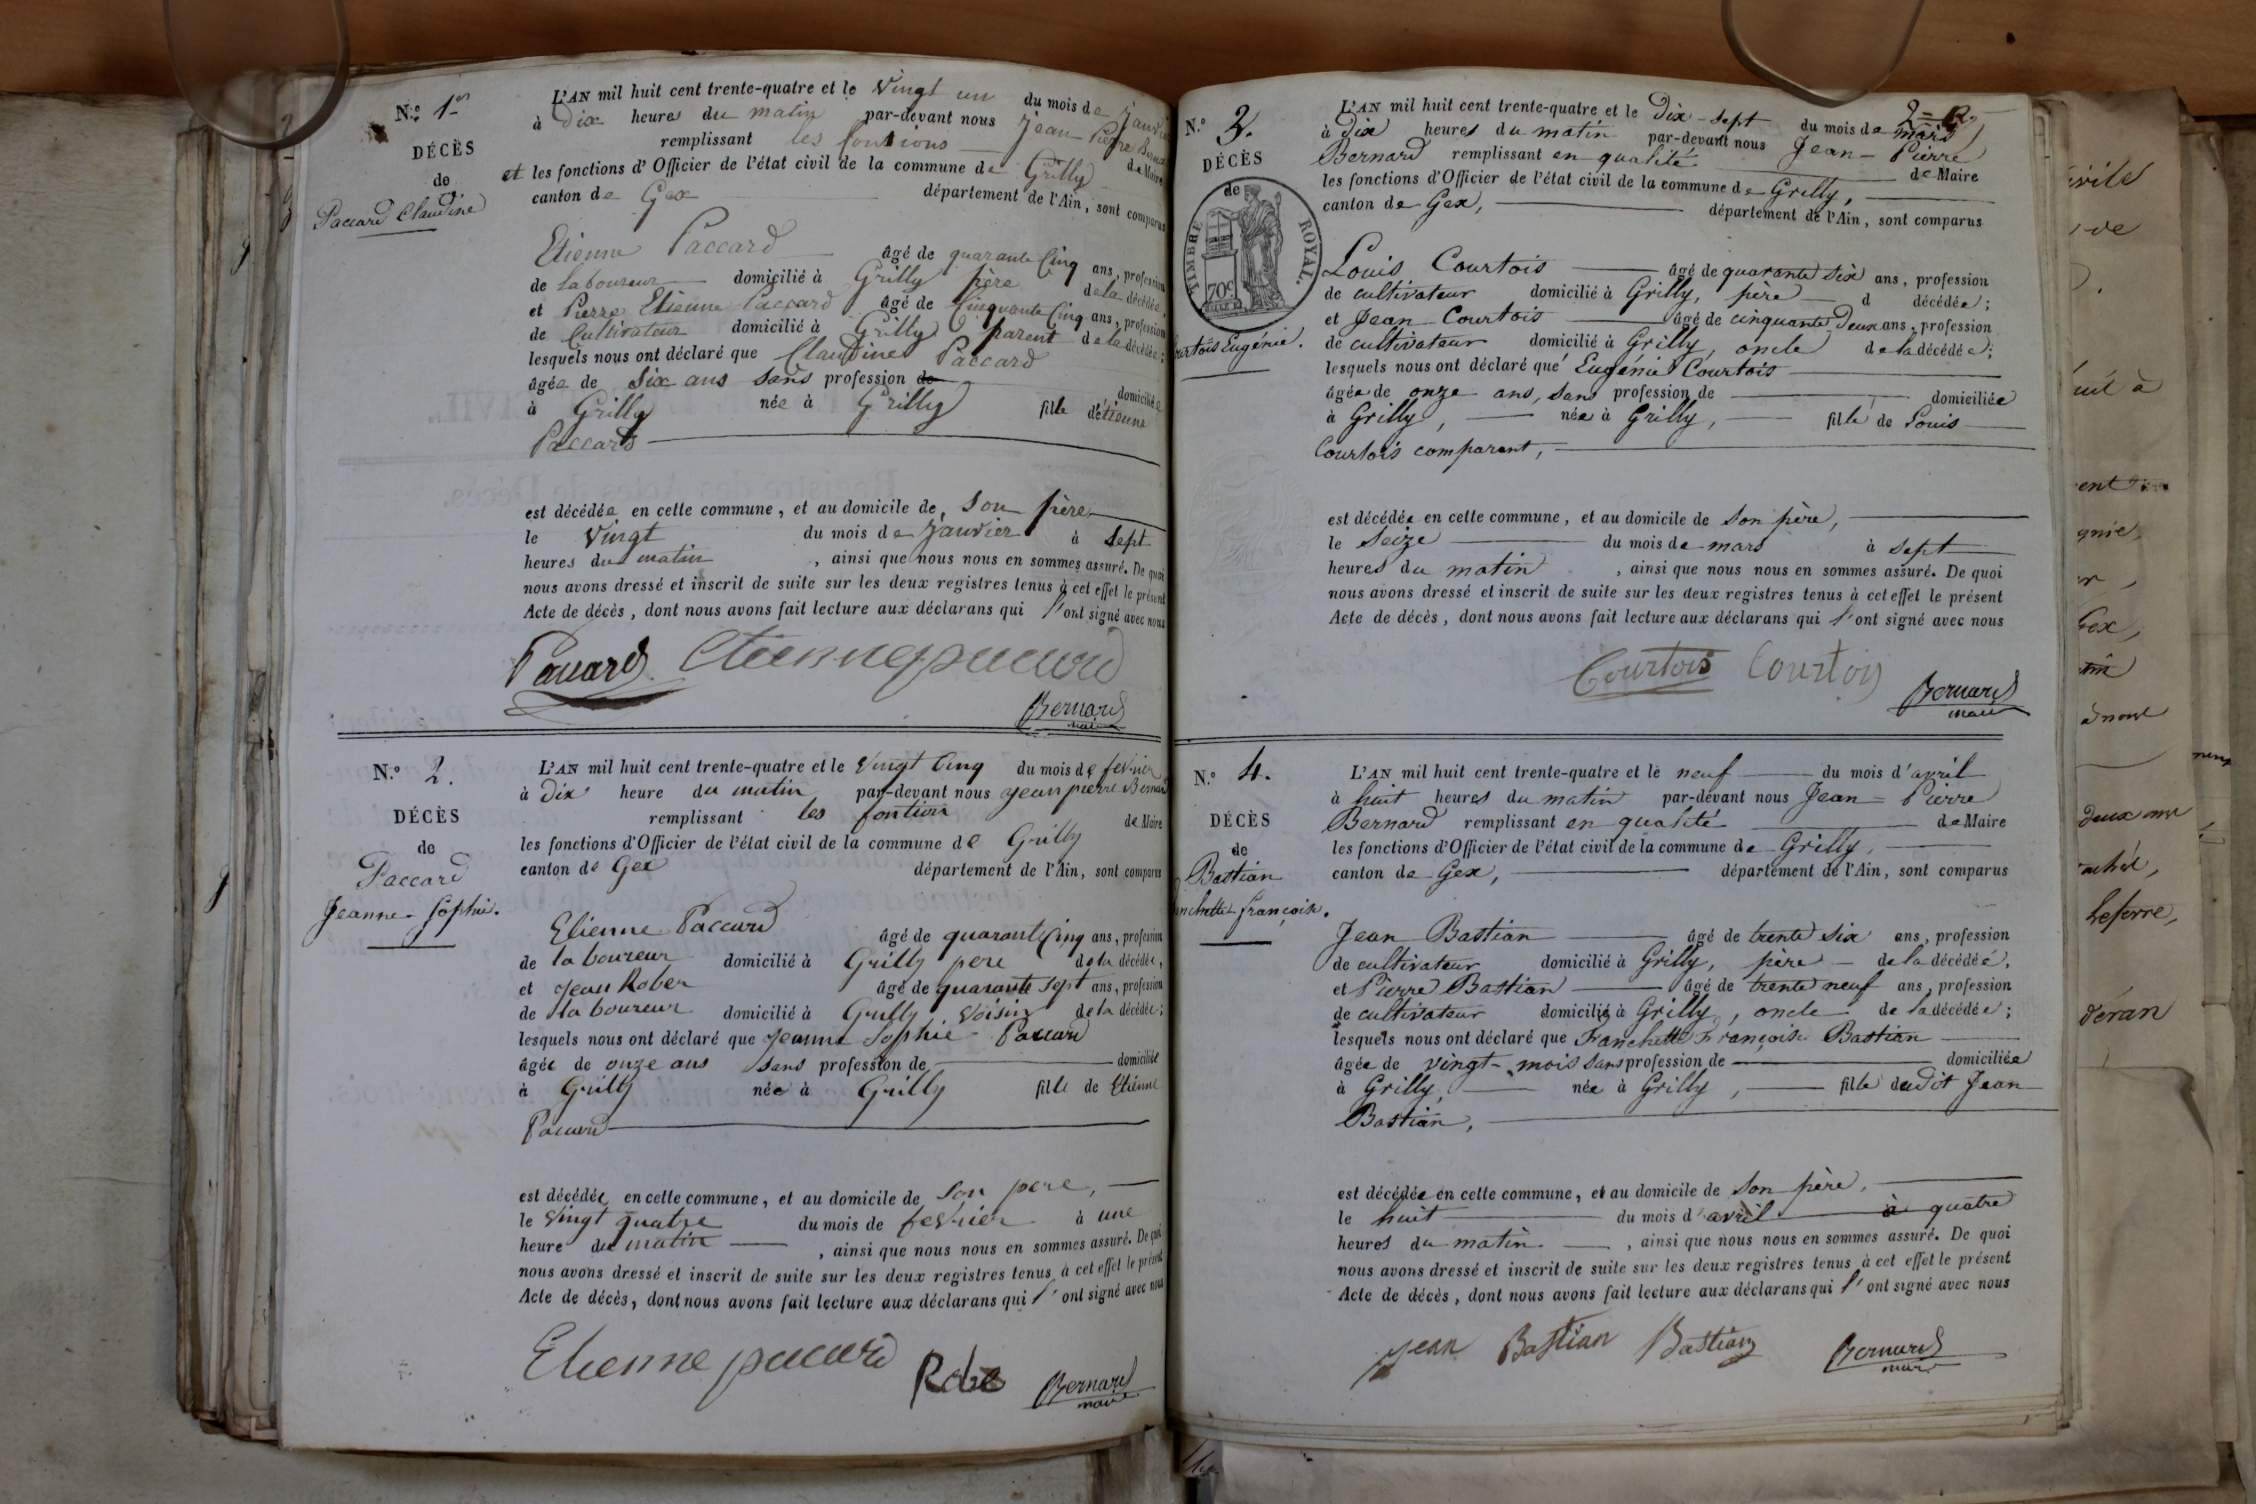 N.º 1er
DÉCÈS
de
Paccard Claudine
L'AN mil huit cent trente-quatre et le vingt un du mois de janvier
à dix heures du matin par-devant nous Jean Pierre Bernard
remplissant les fontions de Maire
et les fonctions d'Officier de l'état civil de la commune de Grilly
canton de Gex département de l'Ain, sont comparus
Etienne Paccard âgé de quarante Cinq ans, profession
de laboureur domicilié à Grilly père de la décédée,
et Pierre Etienne Paccard âgé de Cinquante Cinq ans, profession
de Cultivateur domicilié à Grilly parent de la décédée;
lesquels nous ont déclaré que Claudine Paccard
âgée de six ans sans profession de domiciliée
à Grilly née à Grilly fille d'étienne
Paccard
est décédée en cette commune, et au domicile de son père
le vingt du mois de janvier à sept
heures du matin, ainsi que nous nous en sommes assuré. De quoi
nous avons dressé et inscrit de suite sur les deux registres tenus à cet effet le présent
Acte de décès, dont nous avons fait lecture aux déclarans qui l'ont signé avec nous
Paccard Etienne paccard
Bernard
maire
N.º 2.
DÉCÈS
de
Paccard
Jeanne-Sophie.
L'AN mil huit cent trente-quatre et le vingt Cinq du mois de fevrier
à dix heure du matin par-devant nous jean pierre Bernard
remplissant les fontion de Maire
les fonctions d'Officier de l'état civil de la commune de Grilly
canton de Gex département de l'Ain, sont comparus
Etienne Paccard âgé de quarante Cinq ans, profession
de laboureur domicilié à Grilly pere de la décédée,
et jean Rober âgé de quarante sept ans, profession
de laboureur domicilié à Grilly voisin de la décédée;
lesquels nous ont déclaré que jeanne Sophie Paccard
âgée de onze ans sans profession de domiciliée
à Grilly née à Grilly fille de Etienne
Paccard
est décédée en cette commune, et au domicile de son pere,
le vingt quatre du mois de fevrier à une
heure du matin, ainsi que nous nous en sommes assuré. De quoi
nous avons dressé et inscrit de suite sur les deux registres tenus à cet effet le présent
Acte de décès, dont nous avons fait lecture aux déclarans qui l'ont signé avec nous
Etienne paccard Robe Bernard
maire
N.º 3.
DÉCÈS
de
TIMBRE ROYAL.
70c
Courtois Eugénie.
L'AN mil huit cent trente-quatre et le Dix-sept du mois de mars
à dix heures du matin par-devant nous Jean-Pierre
Bernard remplissant en qualité de Maire
les fonctions d'Officier de l'état civil de la commune de Grilly,
canton de Gex, département de l'Ain, sont comparus
Louis Courtois âgé de quarante six ans, profession
de cultivateur domicilié à Grilly, père d décédée;
et Jean Courtois âgé de cinquante-Deux ans, profession
de cultivateur domicilié à Grilly, oncle de la décédée;
lesquels nous ont déclaré que Eugénie Courtois
âgée de onze ans, sans profession de domiciliée
à Grilly, née à Grilly, fille de Louis
Courtois comparant,
est décédée en cette commune, et au domicile de son père,
le seize du mois de mars à sept
heures du matin, ainsi que nous nous en sommes assuré. De quoi
nous avons dressé et inscrit de suite sur les deux registres tenus à cet effet le présent
Acte de décès, dont nous avons fait lecture aux déclarans qui l'ont signé avec nous
Courtois Courtois Bernard
maire
N.º 4.
DÉCÈS
de
Bastian
nchette françoise.
L'AN mil huit cent trente-quatre et le neuf du mois d'avril
à huit heures du matin par-devant nous Jean-Pierre
Bernard remplissant en qualité de Maire
les fonctions d'Officier de l'état civil de la commune de Grilly,
canton de Gex, département de l'Ain, sont comparus
Jean Bastian âgé de trente six ans, profession
de cultivateur domicilié à Grilly, père de la décédée,
et Pierre Bastian âgé de trente neuf ans, profession
de cultivateur domicilié à Grilly, oncle de la décédée;
lesquels nous ont déclaré que Fanchette Françoise Bastian
âgée de vingt-mois sans profession de domiciliée
à Grilly, née à Grilly, fille dudit Jean
Bastian,
est décédée en cette commune, et au domicile de son père,
le huit du mois d'avril à quatre
heures du matin, ainsi que nous nous en sommes assuré. De quoi
nous avons dressé et inscrit de suite sur les deux registres tenus à cet effet le présent
Acte de décès, dont nous avons fait lecture aux déclarans qui l'ont signé avec nous
jean Bastian Bastian Bernard
maire